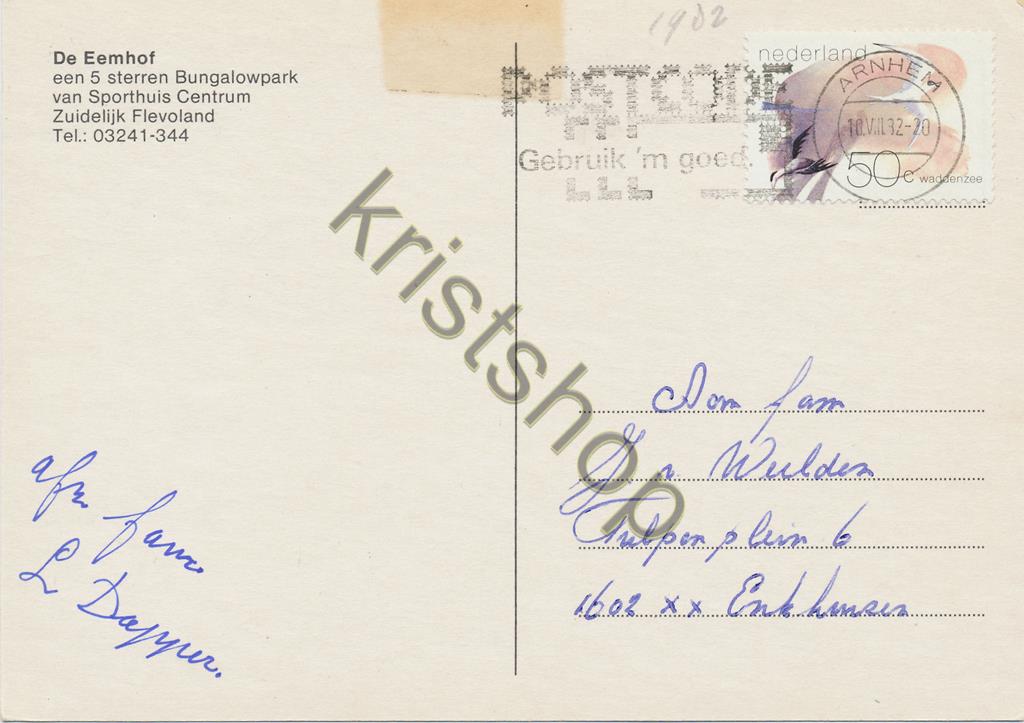 De Eemhof
een 5 sterren Bungalowpark
van Sporthuis Centrum
Zuidelijk Flevoland
Tel.: 03241-344
1982
POSTCODE
Gebruik 'm goed.
nederland
ARNHEM
10.VIII.82-20
50c waddenzee
kristshop
Aan fam
J v Weelden
Tulpenplein 6
1602 xx Enkhuizen
afz fam
L Dapper.